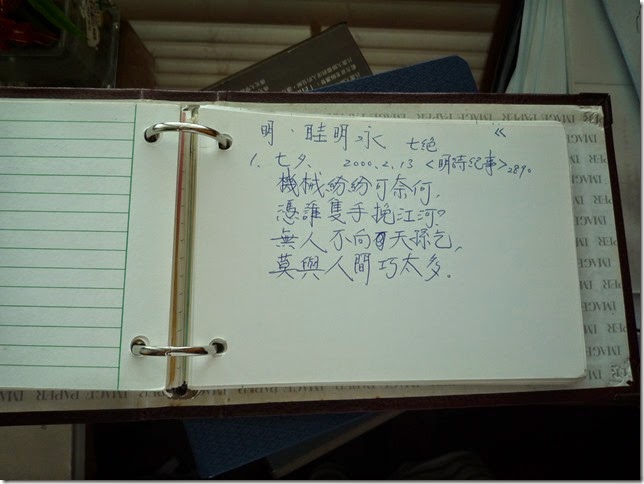 明．眭明永 七绝 《
1. 七夕、 2000.2.13 <明诗纪事>2890
機械紛紛可奈何,
憑誰隻手挽江河?
無人不向天孫乞,
莫與人間巧太多.
IMAGE PAPER IMAGE PAPER